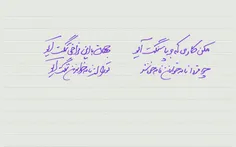 مکن کاری که بر پا سنگت آیو جهان با این فراخی تنگت آیو
چو فردا نامه خوانان نامه خوانند تو را از نامه خواندن ننگت آیو